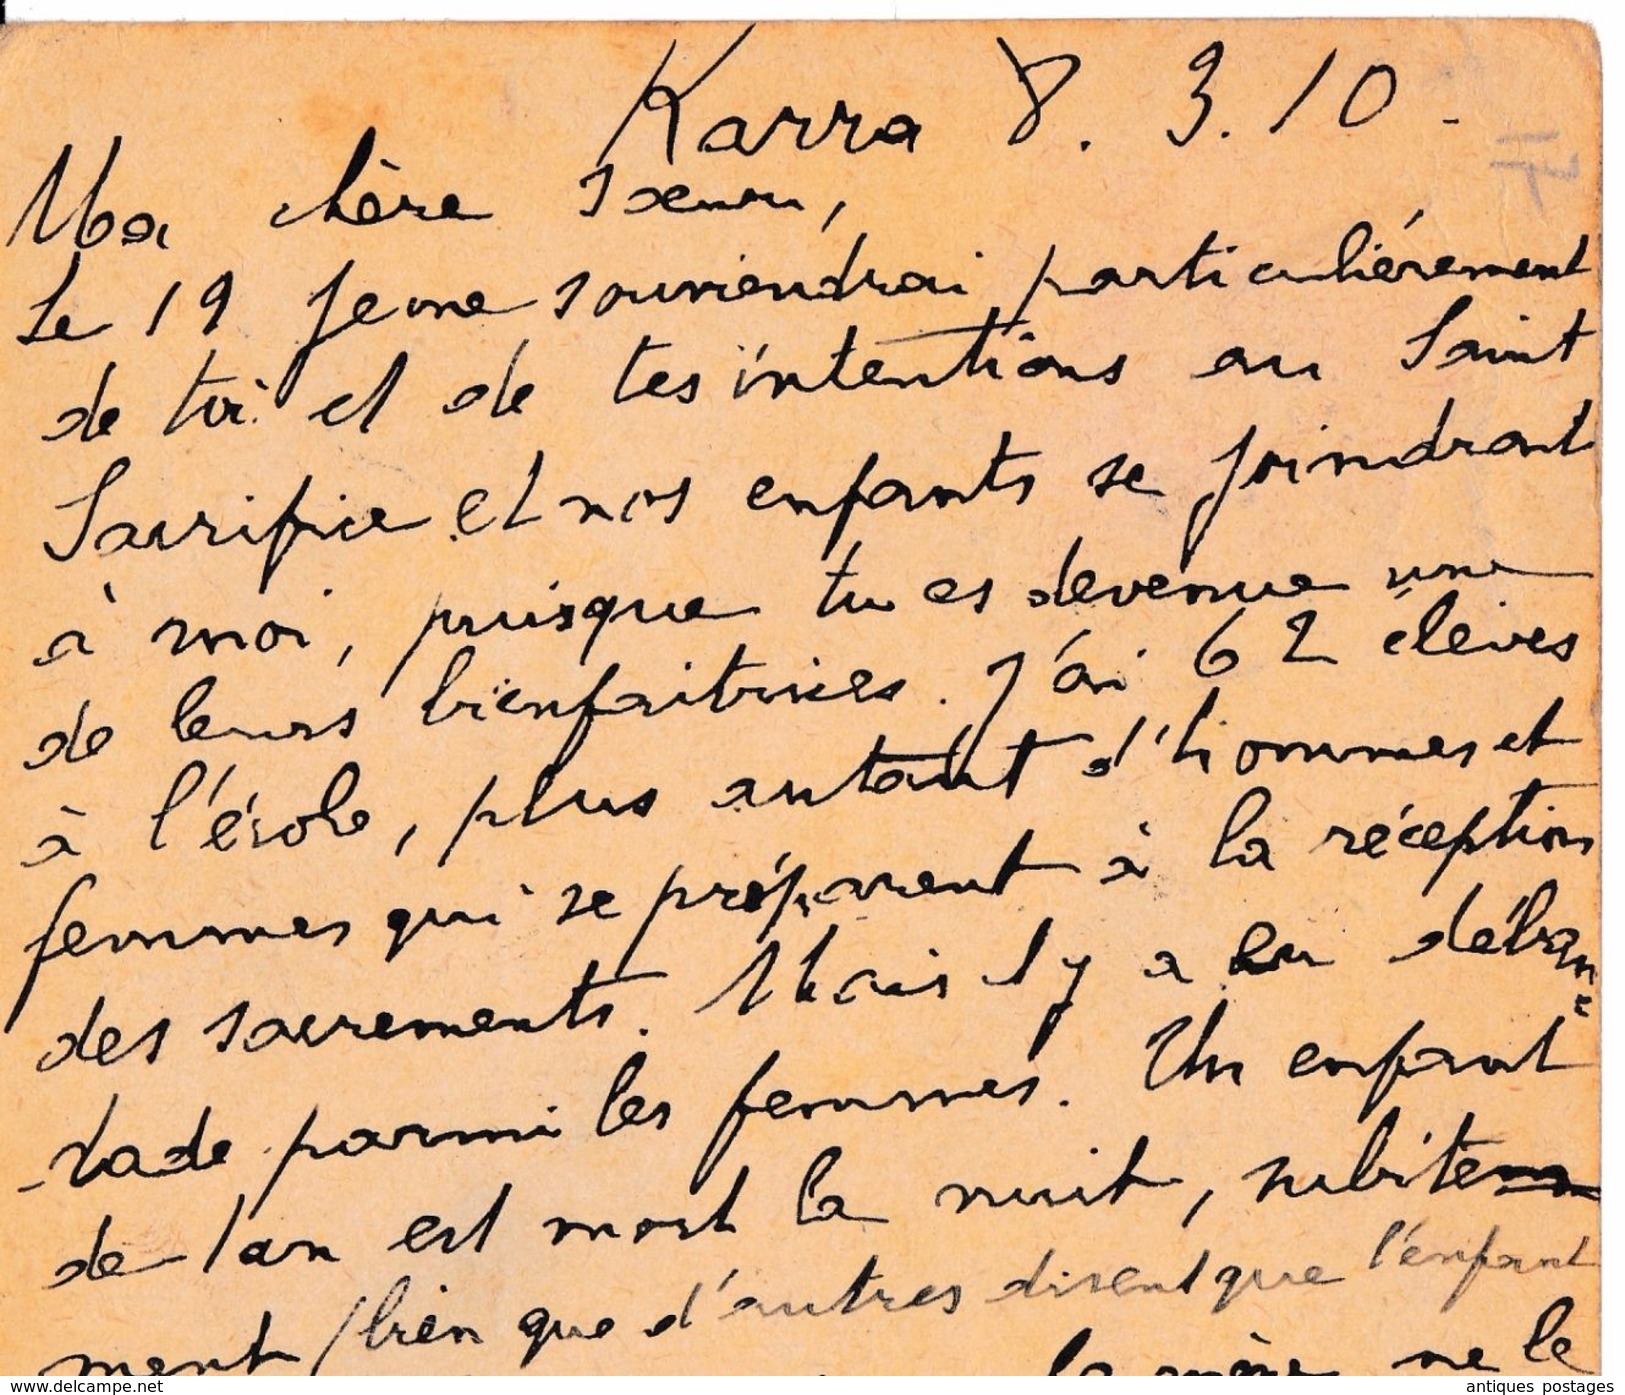 Karra 8. 3. 10.
Ma chère Soeur,
Le 19 je me souviendrai particuliérement
de toi et de tes intentions au Saint
Sacrifice et nos enfants se joindront
à moi, puisque tu es devenue une
de leurs bienfaitrices. J'ai 62 élèves
à l'école, plus autant d'hommes et
femmes qui se préparent à la réception
des sacrements. Mais il y a eu déban=
-dade parmi les femmes. Un enfant
de 1 an est mort la nuit, subitem
ment, bien que d'autres disent que l'enfant
la mère ne le
www.delcampe.net
antiques postages